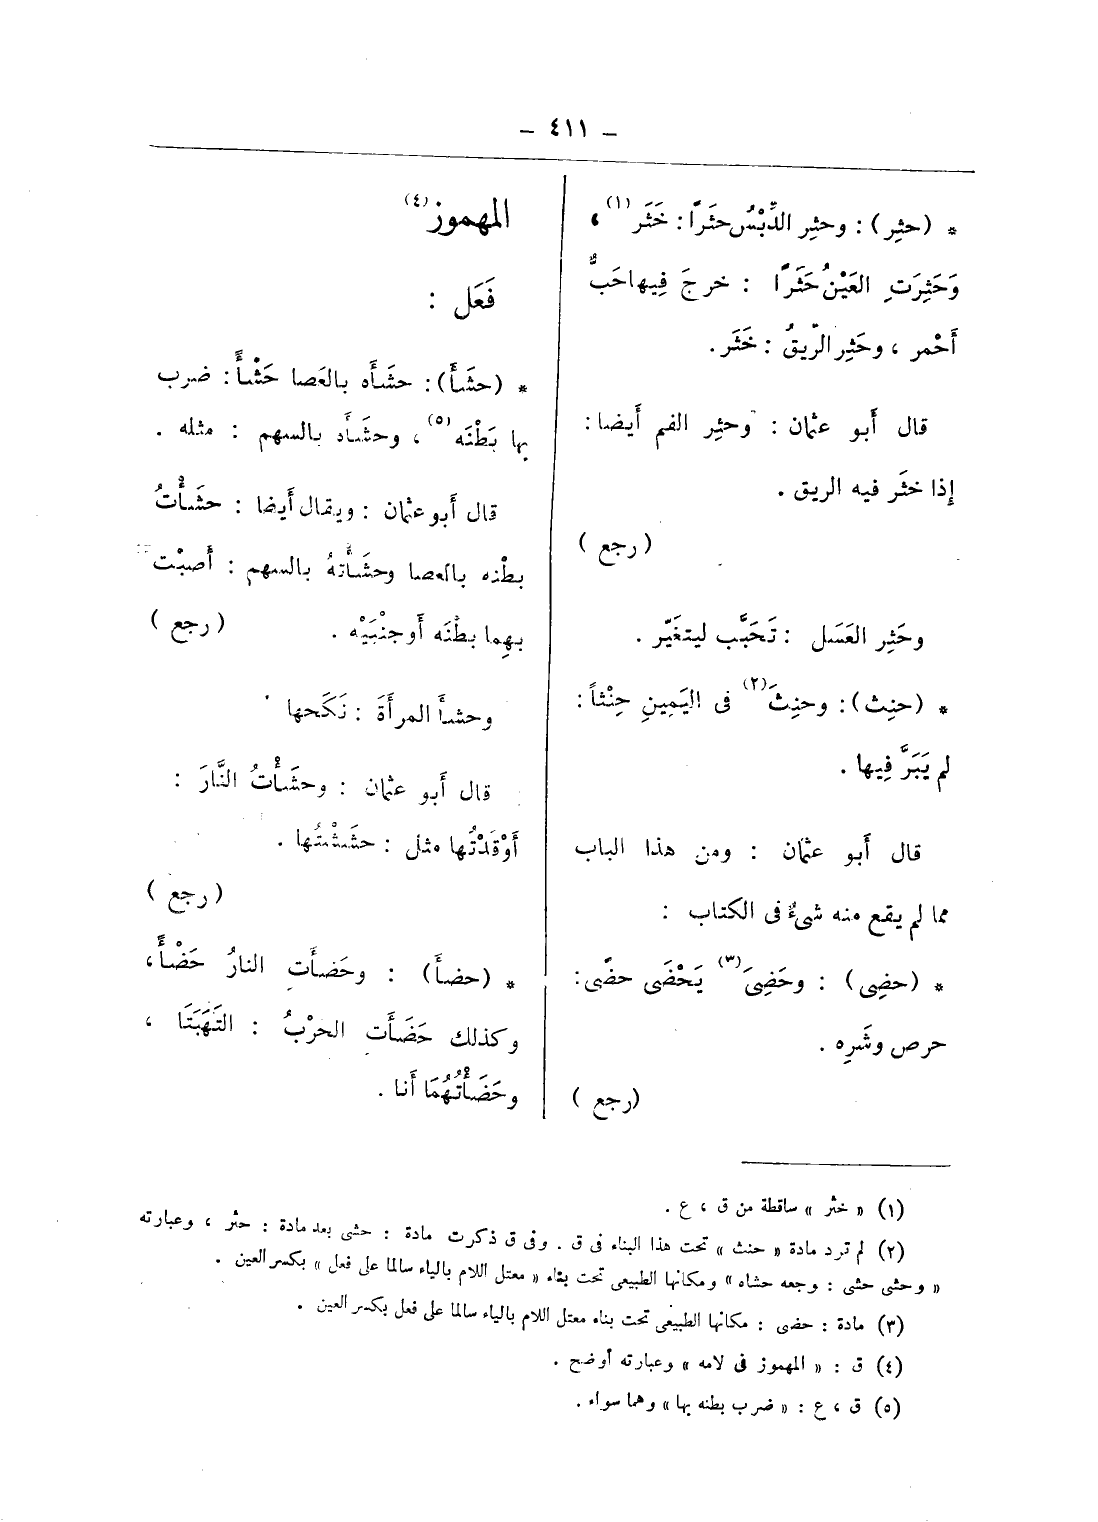 – ٤١١ –
* (حثِر) : وحثِر الدِّبْسُ حثَرًا : خَثَر (١) ،
وَحَثِرَتِ العَيْنُ حَثَرًا : خرجَ فِيها حَبٌّ
أَحْمر ، وحَثِر الرّيقُ : خَثَر .
قال أَبو عثمان : وحثِر الفم أَيضا :
إذا خثَر فيه الريق .
( رجع )
وحَثِر العَسَل : تَحَبَّب ليتغَيّر .
* (حنِث) : وحنِثَ (٢) فى اليَمِينِ حِنْثاً :
لم يَبَرَّ فِيها .
قال أَبو عثمان : ومن هذا الباب
مما لم يقع منه شىءٌ فى الكتاب :
* (حضِى) : وحَضِىَ (٣) يَحْضَى حضًى :
حرص وشَرِه .
(رجع )
المهموز (٤)
فَعَل :
* (حشَأَ) : حشَأَه بالعَصا حَشْأً : ضرب
بها بَطْنَه (٥) ، وحشَأَه بالسهم : مثله .
قال أَبو عثمان : ويقال أَيضا : حشَأْتُ
بطْنه بالعصا وحشَأْتهُ بالسهم : أَصبْت
بهِما بطْنَه أَو جنْبَيْه .
( رجع )
وحشأَ المرأَةَ : نَكَحها
قال أَبو عثمان : وحشَأْتُ النَّارَ :
أَوْقَدْتُها مثل : حشَشْتُها .
( رجع )
* (حضأَ) : وحَضأَت النارُ حَضْأً ،
وكذلك حَضَأَت الحرْبُ : الْتَهَبَتَا ،
وحَضَأْتُهُمَا أَنا .
(١) « خثر » ساقطة من ق ، ع .
(٢) لم ترد مادة « حنث » تحت هذا البناء فى ق . وفى ق ذكرت مادة : حشى بعد مادة : حثر ، وعبارته
« وحشى حشى : وجعه حشاه » ومكانها الطبيعى تحت بناء « معتل اللام بالياء سالما على فعل » بكسر العين .
(٣) مادة : حضى : مكانها الطبيعى تحت بناء معتل اللام بالياء سالما على فعل بكسر العين .
(٤) ق : « المهموز فى لامه » وعبارته أوضح .
(٥) ق ، ع : « ضرب بطنه بها » وهما سواء .